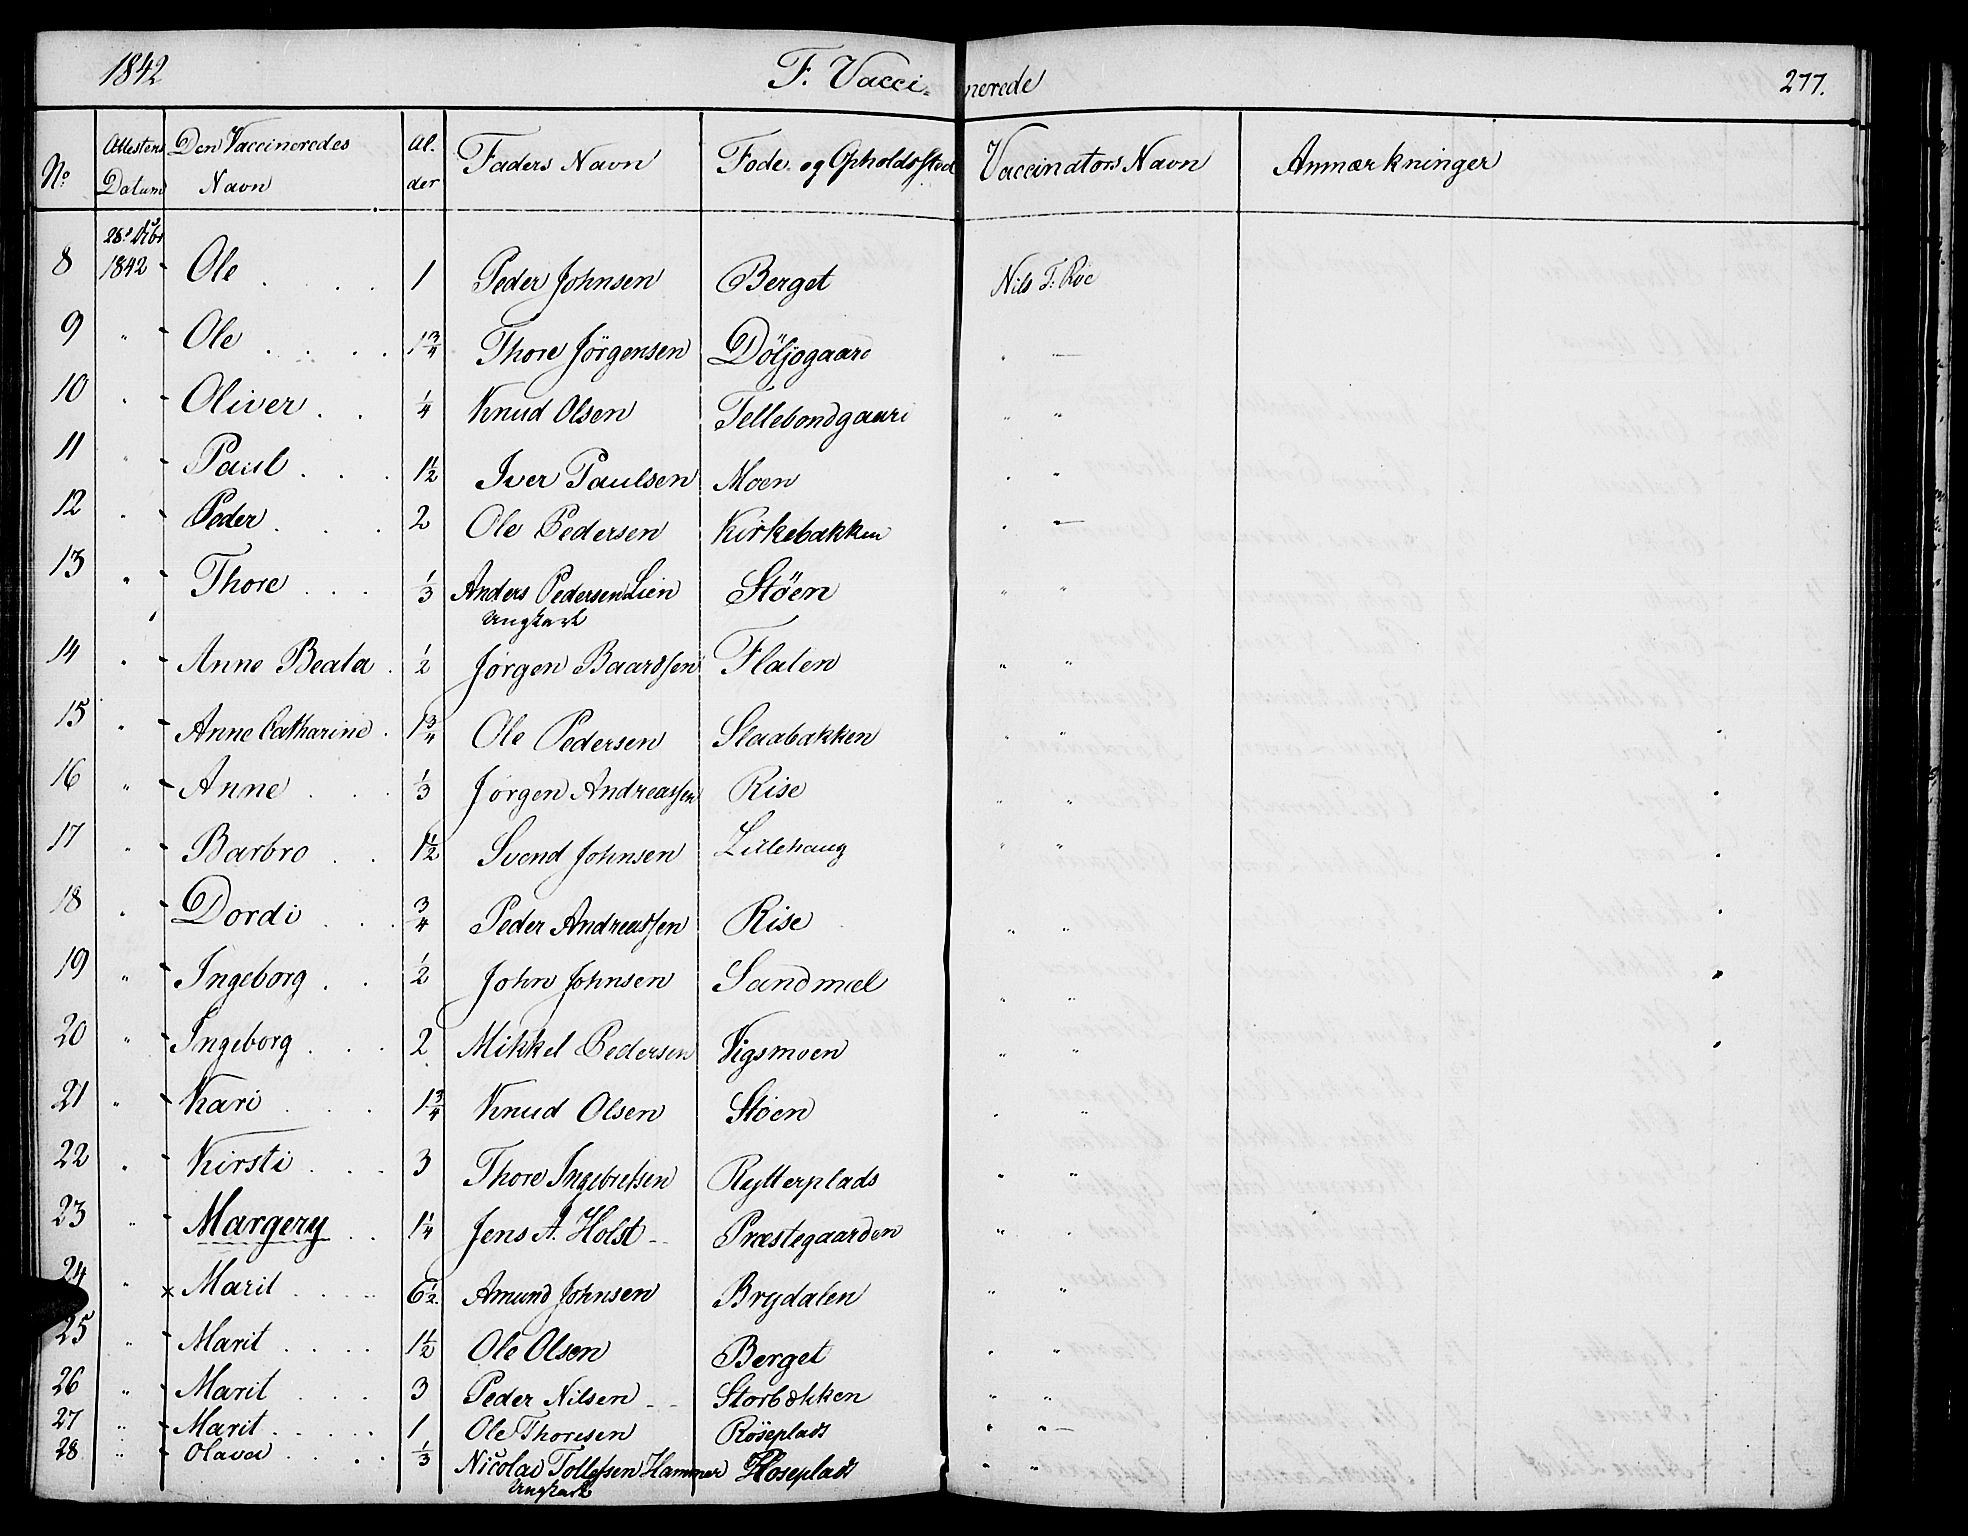 1842 F. Vaccinerede 277.
No. Attestens Datum Den Vaccineredes Navn Alder Faders Navn Føde- og Opholdssted Vaccinators Navn Anmærkninger
8 28de 1842 - Ole 1 Peder Johnsen Berget Nils T. Roe
9 " - Ole 1 3/4 Thore Jörgensen Döljogaard " —
10 " - Oliver 1/4 Knud Olsen Tellebondgaard " "
11 " - Paul 1 1/2 Iver Paulsen Moen " "
12 " - Peder 2 Ole Pedersen Kirkebakken " —
13 " - Thore 1/3 Anders Pedersen Lien Stöen " "
Ungkarl
14 " - Anne Beata 1/2 Jørgen Baardssen Flaten " "
15 " - Anne Catharine 1 3/4 Ole Pedersen Slaabakken " "
16 " - Anne 1/3 Jørgen Andreassen Rise " "
17 " - Barbro 1 1/2 Svend Johnsen Lillehaug " "
18 " - Dordi 3/4 Peder Andreassen Rise " "
19 " - Ingeborg 1/2 John Johnsen Sandmæl " "
20 " - Ingeborg 2 Mikkel Pedersen Vigsmoen " "
21 " - Kari 1 3/4 Knud Olsen Støen " "
22 " - Kirsti 3 Thore Ingebretsen Rytterplads " "
23 " - Margery 1 1/4 Jens A. Holst Præstegaarden " "
24 " x Marit 6 1/2 Amund Johnsen Brydalen " "
25 " - Marit 1 1/2 Ole Olsen Berget " "
26 " - Marit 3 Peder Nilsen Storbækken " "
27 " - Marit 1 Ole Thoresen Röseplads " —
28 " - Olava 1/3 Nicolai Tollefsen Hammer Röseplads " "
Ungkarl